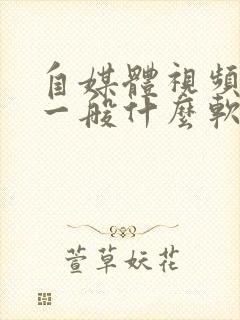 自媒體視頻
一般什麼軟
萱草妖花